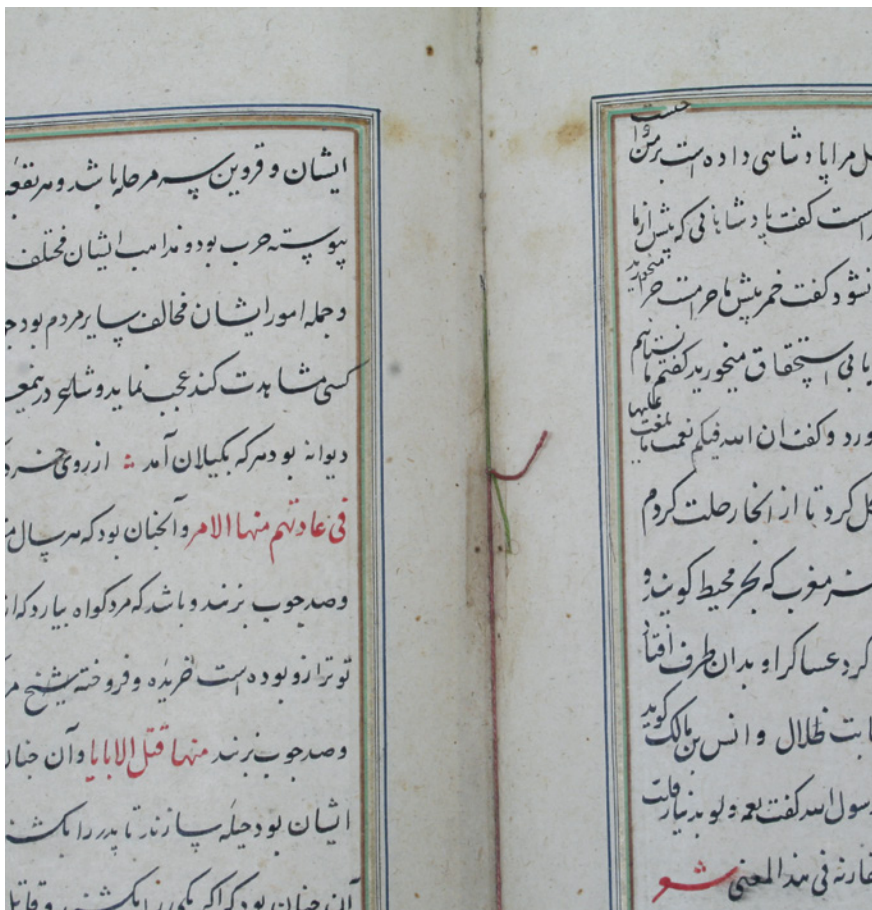 ل مرا پادشاهی داده است بر من
است کفت پادشاهانی که پیش از ما
نشود کفت خمر پیش ما حرامست چرا میخورید
یا بی استحقاق میخورید کفتم ما
ورد و کفت ان الله فیکم نعمت ما بلغت علیها
کل کرد تا از انجا رحلت کردم
مغرب که بحر محیط کویند و
کرد عساکر او بدان طرف افتا
بت ظلال و انس بن مالک کوید
رسول الله کفت نعم ولو
فی هذا المعنی شعر
ایشان و قزوین سه مرحله باشد و هر بقعه
پیوسته حرب بود و مذاهب ایشان مختلف
و جمله امور ایشان مخالف سایر مردم بود
کسی مشاهدت کند عجب نماید و شاعر در
دیوانه بود هر که بکیلان آمد از روی
فی عادتهم منها الامر و آنچنان بود که هر سال
و صد چوب بزنند و باشد که مرد کواه بیارد که از
تو ترازو بوده است نخریده و فروخته شیخ
و صد چوب بزنند منها قتل الابایا و آن چنان
ایشان بود حیله سازند تا پدر را بکشند
آن چنان بود که اکر یکی را بکشند و قاتل